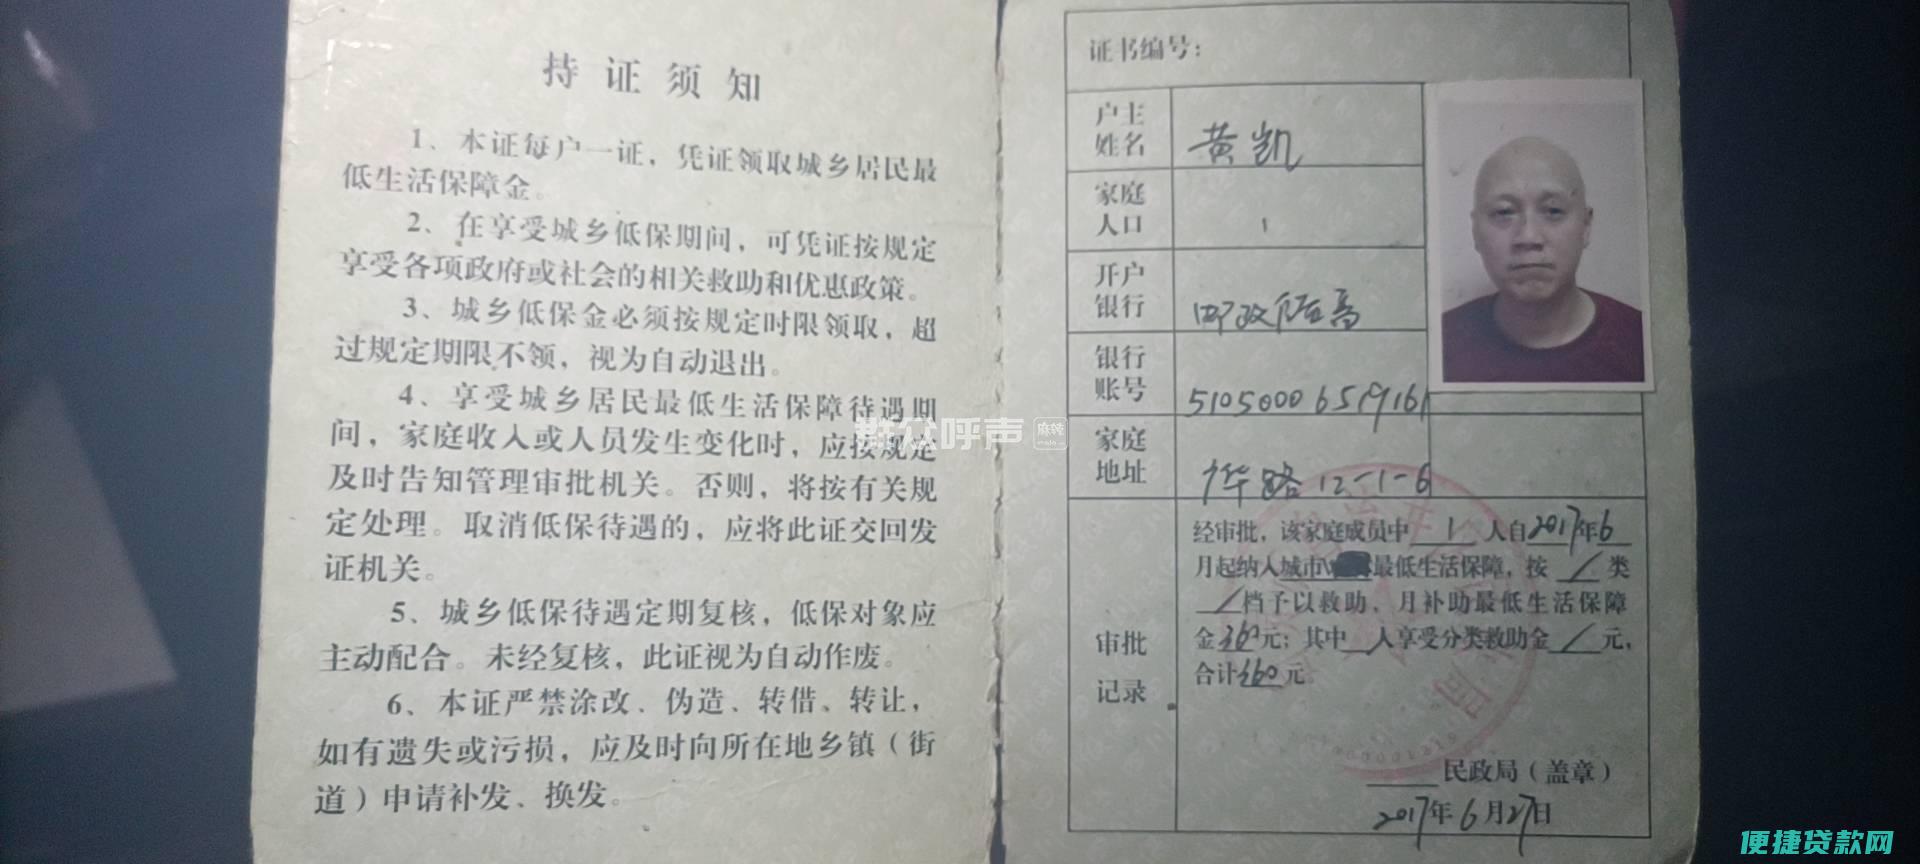 持证须知
1、本证每户一证，凭证领取城乡居民最
低生活保障金。
2、在享受城乡低保期间，可凭证按规定
享受各项政府或社会的相关救助和优惠政策。
3、城乡低保金必须按规定时限领取，超
过规定期限不领，视为自动退出。
4、享受城乡居民最低生活保障待遇期
间，家庭收入或人员发生变化时，应按规定
及时告知管理审批机关。否则，将按有关规
定处理。取消低保待遇的，应将此证交回发
证机关。
5、城乡低保待遇定期复核，低保对象应
主动配合。未经复核，此证视为自动作废。
6、本证严禁涂改、伪造、转借、转让，
如有遗失或污损，应及时向所在地乡镇（街
道）申请补发、换发。
证书编号：
户主姓名 黄凯
家庭人口 1
开户银行 邮政
银行账号
家庭地址 路12-1-6
审批记录
经审批，该家庭成员中 1 人自2017年6
月起纳入城市最低生活保障，按 / 类
/档予以救助，月补助最低生活保障
金360元；其中 人享受分类救助金 / 元，
合计360元。
民政局（盖章）
2017年6月27日
群众呼声 麻辣
便捷贷款网